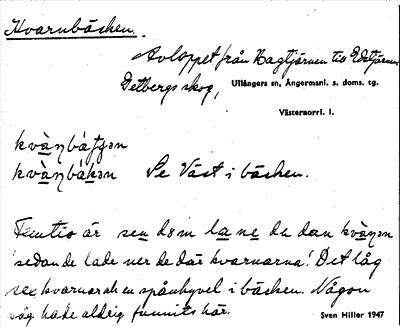 Kvarnbäcken.
Avloppet från Hagtjärnen till Edstjärnen
Detbergs skog, Ullångers sn, Ångermanl. s. doms. cg.
Västernorrl. l.
kvàṇbátʃən
kvàṇbákən Se Väst i bäcken.
Femtio är sen dom la ne de dan kvàṇən
'sedan de lade ner de där kvarnarna'. Det låg
sex kvarnar och en spånhyvel i bäcken. Någon
såg hade aldrig funnits här.
Sven Hiller 1947